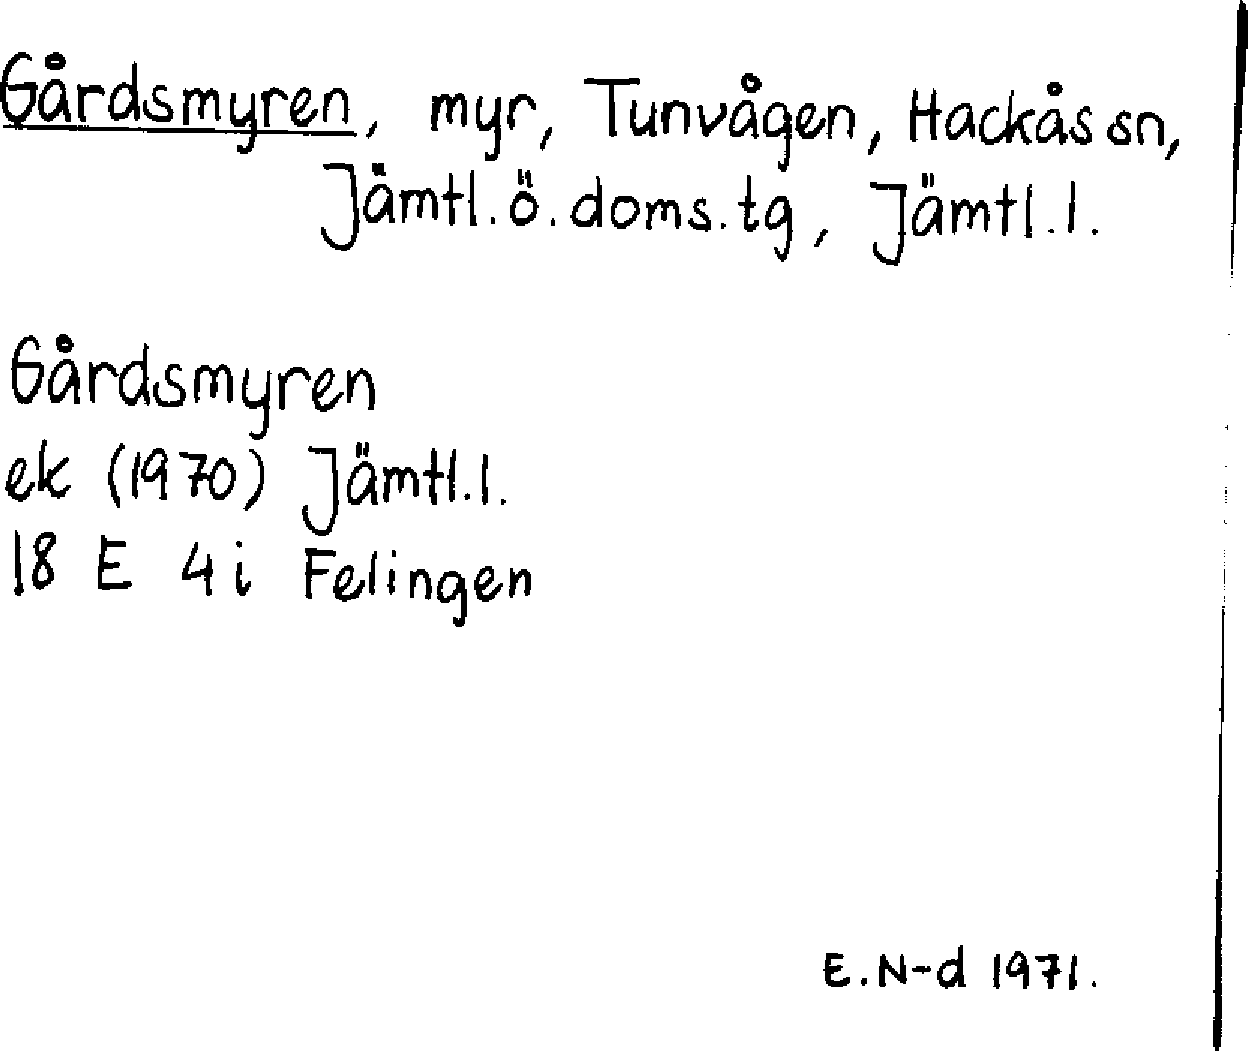 Gårdsmyren, myr, Tunvågen, Hackås sn,
Jämtl.ö.doms.tg, Jämtl.l.
Gårdsmyren
ek (1970) Jämtl.l.
18 E 4i Felingen
E.N-d 1971.